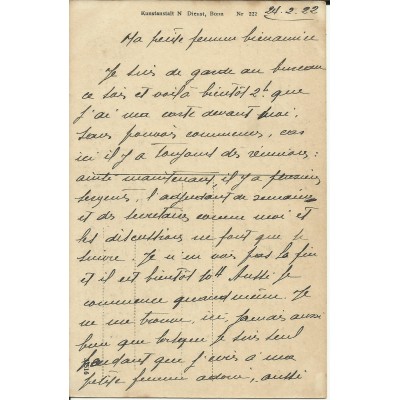 Kunstanstalt N Dienst, Bonn Nr 222
21-2-22
Ma petite femme bienaimée
Je suis de garde au bureau
ce soir et voilà bientôt 2h que
j'ai ma carte devant moi,
sans pouvoir commencer, car
ici il y a toujours des réunions:
ainsi maintenant, il y a plusieurs
sergents, l'adjudant de semaine
et des secrétaires comme moi et
les discussions ne font que se
suivre. Je n'en vois pas la fin
et il est bientôt 10h. Aussi je
commence quand même. Je
ne me trouve, ici, jamais aussi
bien que lorsque je suis seul
pendant que j'écris à ma
petite femme adorée, aussi